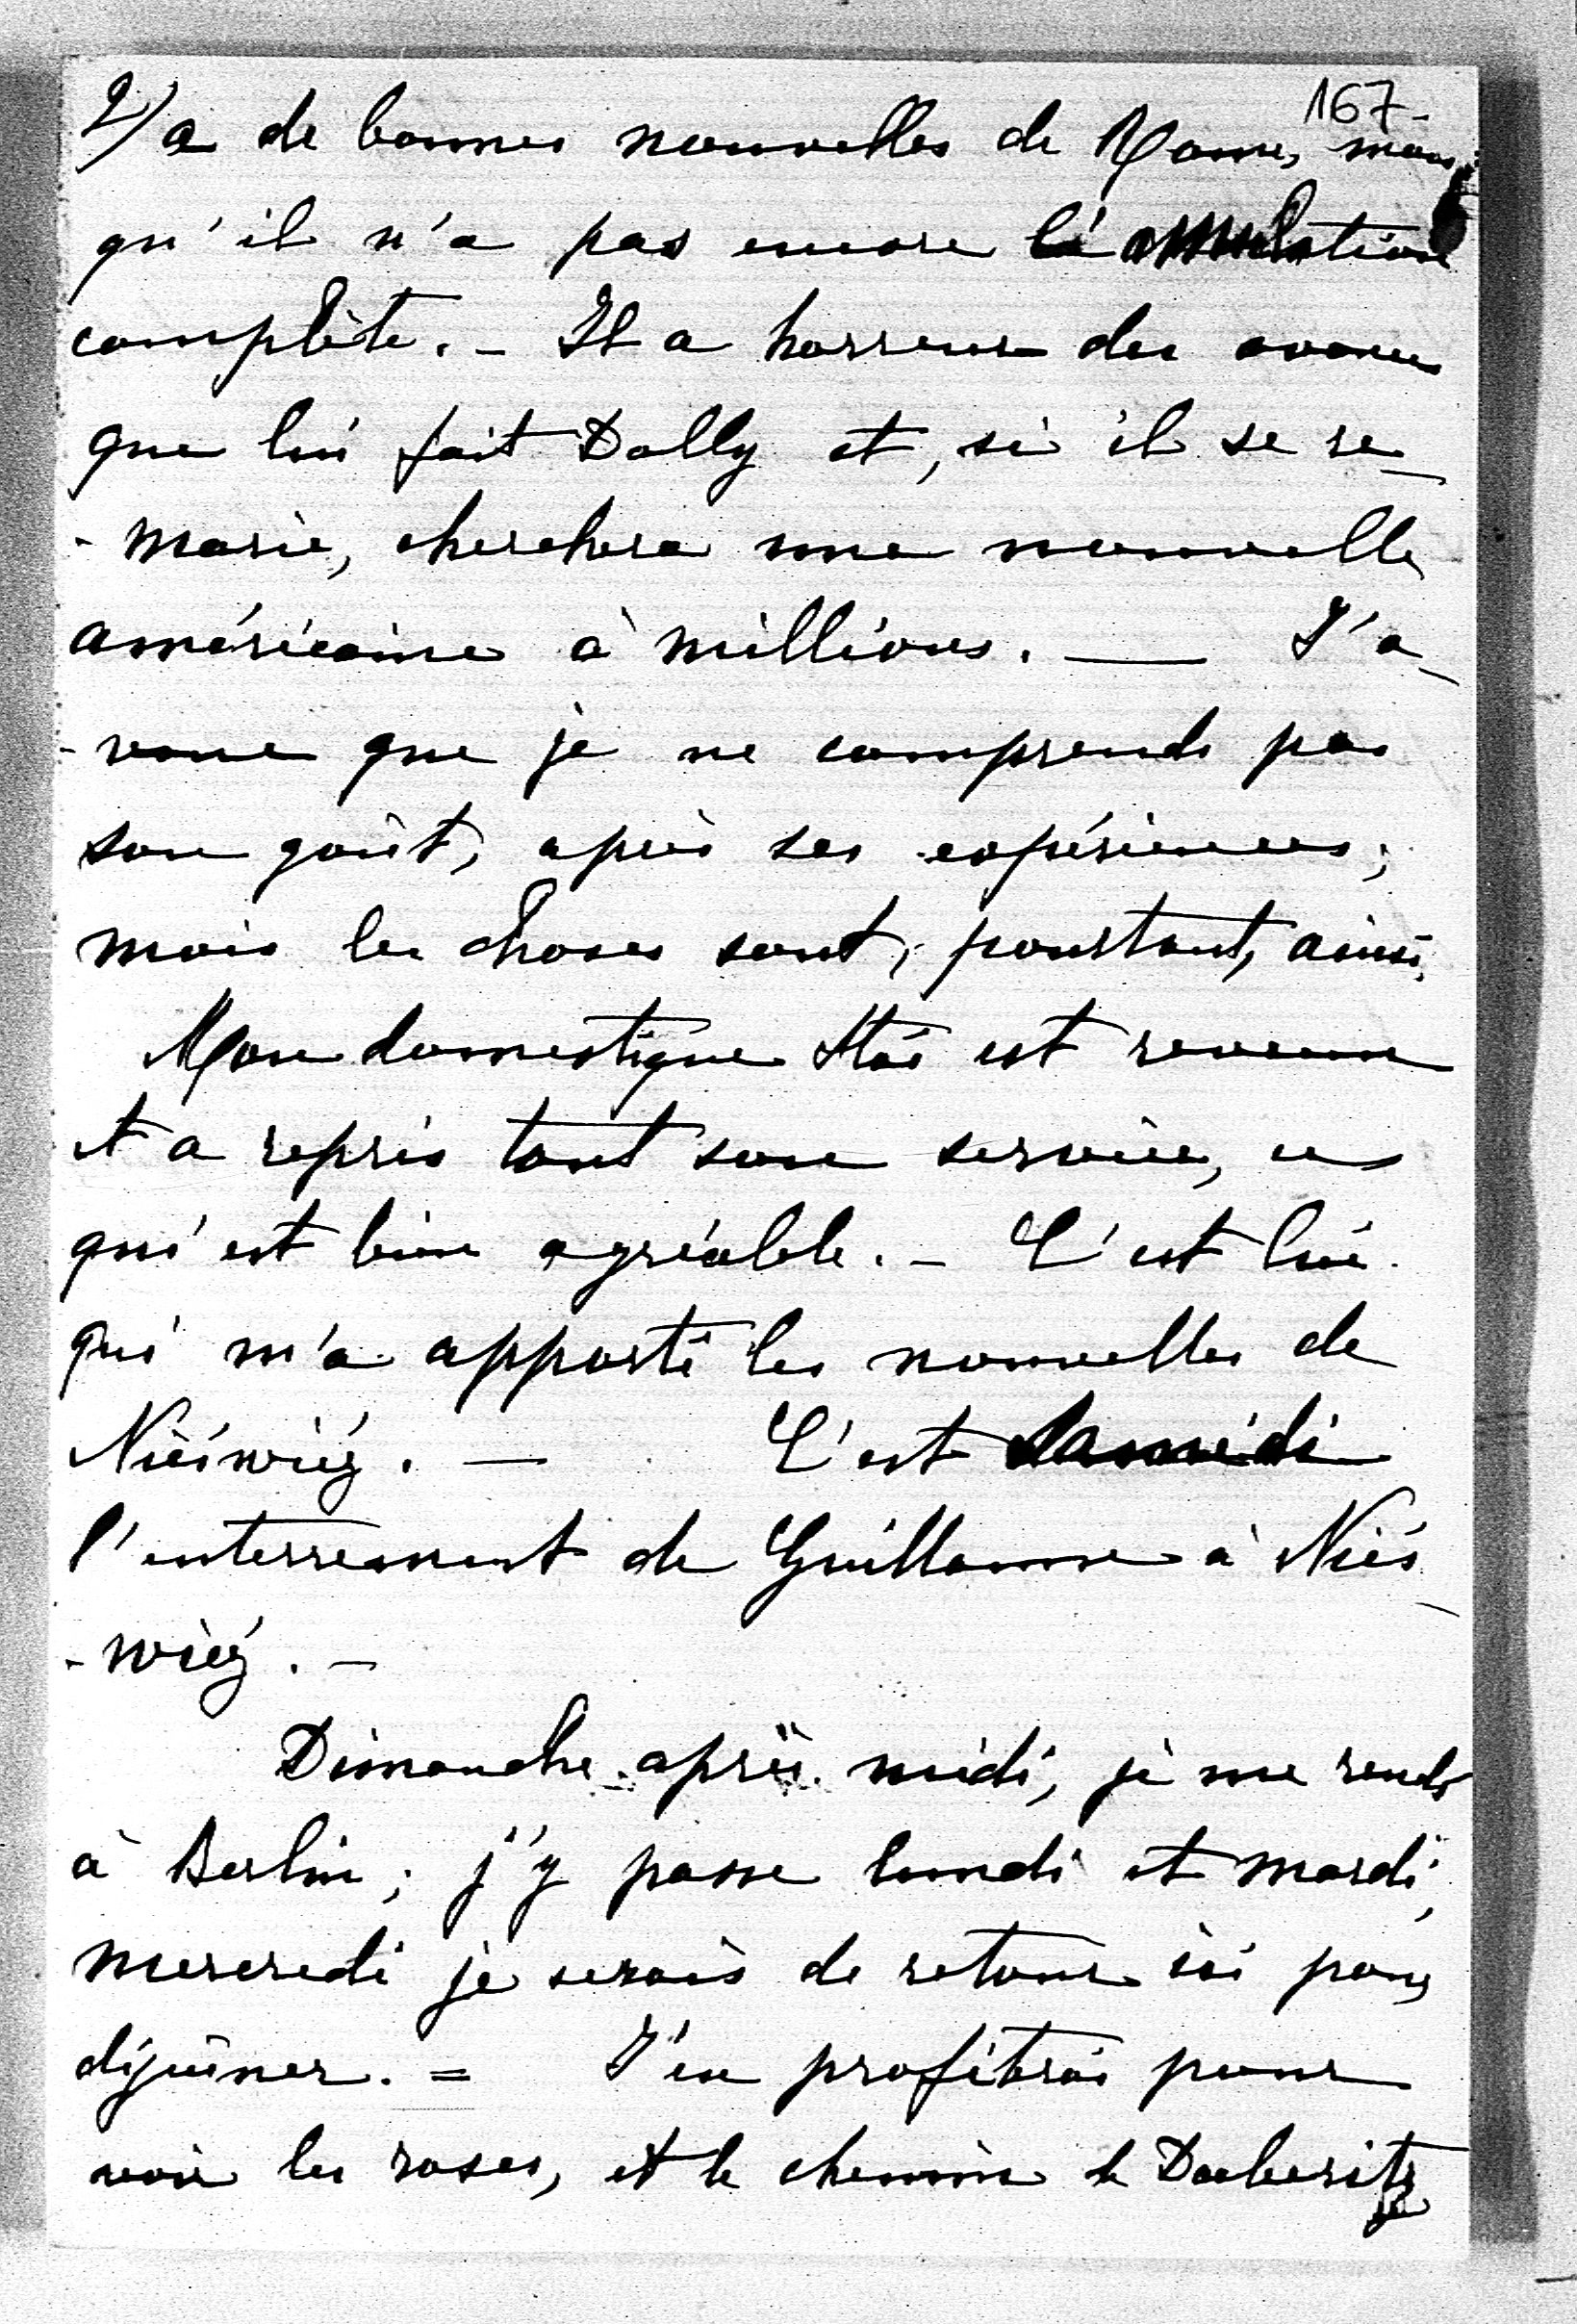 167
2/ a de bonnes nouvelles de Rome, mais
qu'il n'a pas encore l'annulation
complète. - Il a horreur des avances
que lui fait Dolly et, si il se re-
- marie, cherchera une nouvelle
américaine à millions. — J'a-
- voue que je ne comprends pas
son goût, après ses expériences;
mais les choses sont, pourtant, ainsi.
Mon domestique Staś est revenu
et a repris tout son service, ce
qui est bien agréable. - C'est lui
qui m'a apporté les nouvelles de
Nieświéz. — C'est Samedi
l'enterrement de Guillaume à Nieś-
- wiéz. —
Dimanche après midi, je me rends
à Berlin; j'y passe lundi et mardi,
mercredi je serais de retour ici pour
déjeûner. = J'en profiterai pour
voir les roses, et le chemin de Doeberitz